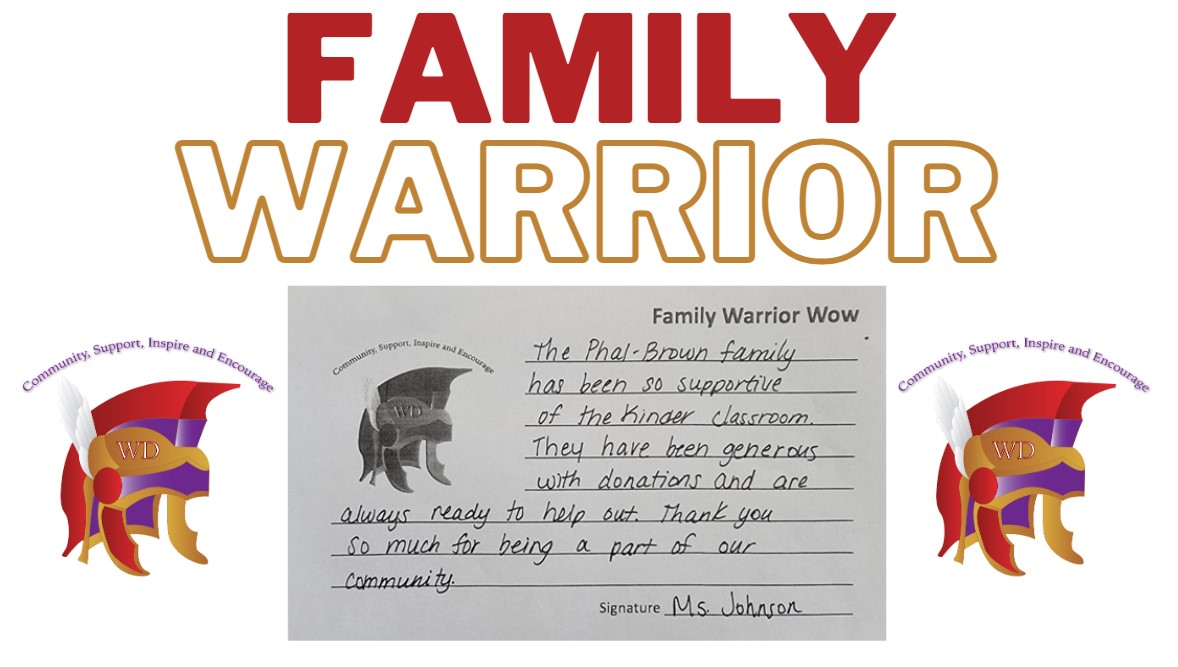 FAMILY
WARRIOR
Community, Support, Inspire and Encourage
WD
Family Warrior Wow
Community, Support, Inspire and Encourage
WD
The Phal-Brown family
has been so supportive
of the Kinder classroom.
They have been generous
with donations and are
always ready to help out. Thank you
so much for being a part of our
community.
Signature Ms. Johnson
Community, Support, Inspire and Encourage
WD